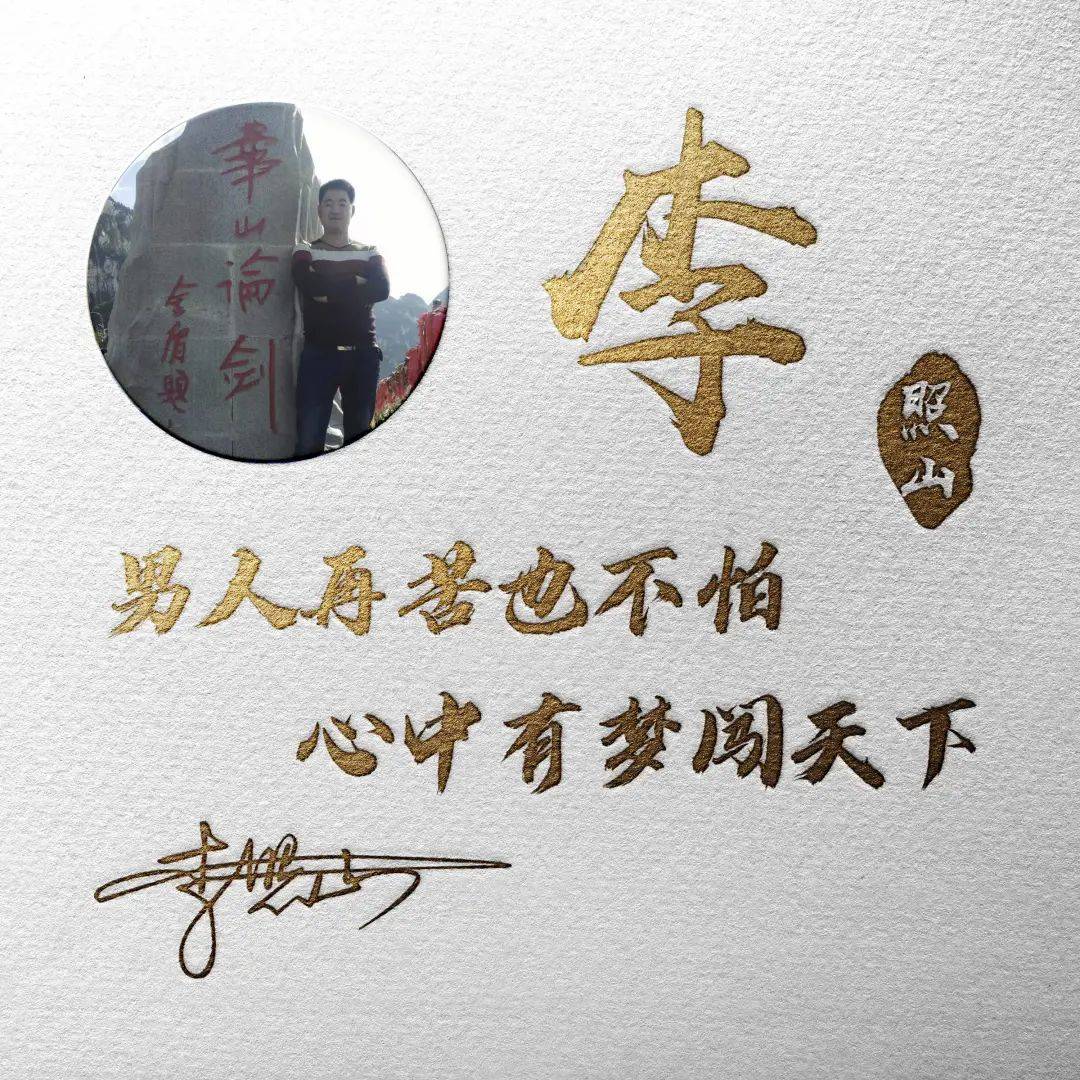 華山論剑
金庸題
李
照山
男人再苦也不怕
心中有梦闯天下
李照山